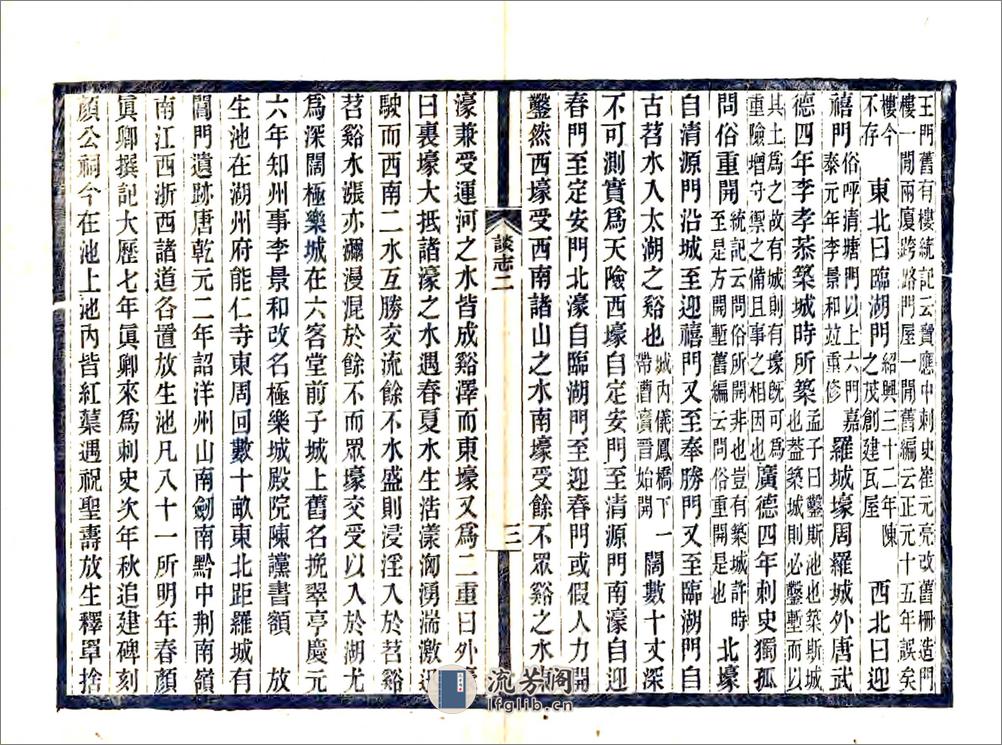 王門舊有樓統記云寶應中刺史崔元亮改舊柵造門
樓一間兩廈跨路門屋一間舊編云正元十五年誤矣
樓今不存 東北曰臨湖門 紹興三十二年陳之茂創建瓦屋 西北曰迎
禧門 俗呼清塘門以上六門嘉泰元年李景和竝重修 羅城壕周羅城外唐武
德四年李孝恭築城時所築 孟子曰鑿斯池也築斯城也蓋築城則必鑿塹而以
其土爲之故有城則有壕旣可爲重險增守禦之備且事之相因也 廣德四年刺史獨孤
問俗重開 統記云問俗所開非也豈有築城許時至是方開塹舊編云問俗重開是也 北壕
自清源門沿城至迎禧門又至奉勝門又至臨湖門自
古苕水入太湖之谿也 城內儀鳳橋下帶漕瀆晉始開 一 闊數十丈深
不可測實爲天險西壕自定安門至清源門南濠自迎
春門至定安門北濠自臨湖門至迎春門或假人力開
鑿然西壕受西南諸山之水南壕受餘不眾谿之水
談志二 三
濠兼受運河之水皆成谿澤而東壕又爲二重曰外
曰裏壕大抵諸濠之水遇春夏水生浩漾洶湧湍激
駛而西南二水互勝交流餘不水盛則浸淫入於苕谿
苕谿水漲亦瀰漫混於餘不而眾壕交受以入於湖尤
爲深闊極樂城在六客堂前子城上舊名挽翠亭慶元
六年知州事李景和改名極樂城殿院陳讜書額 放
生池在湖州府能仁寺東周回數十畝東北距羅城有
閶門遺跡唐乾元二年詔洋州山南劒南黔中荆南嶺
南江西浙西諸道各置放生池凡八十一所明年春顏
眞卿撰記大歷七年眞卿來爲刺史次年秋追建碑刻
顏公祠今在池上池內皆紅蕖遇祝聖壽放生釋罩捨
流芳閣
lfglib.cn